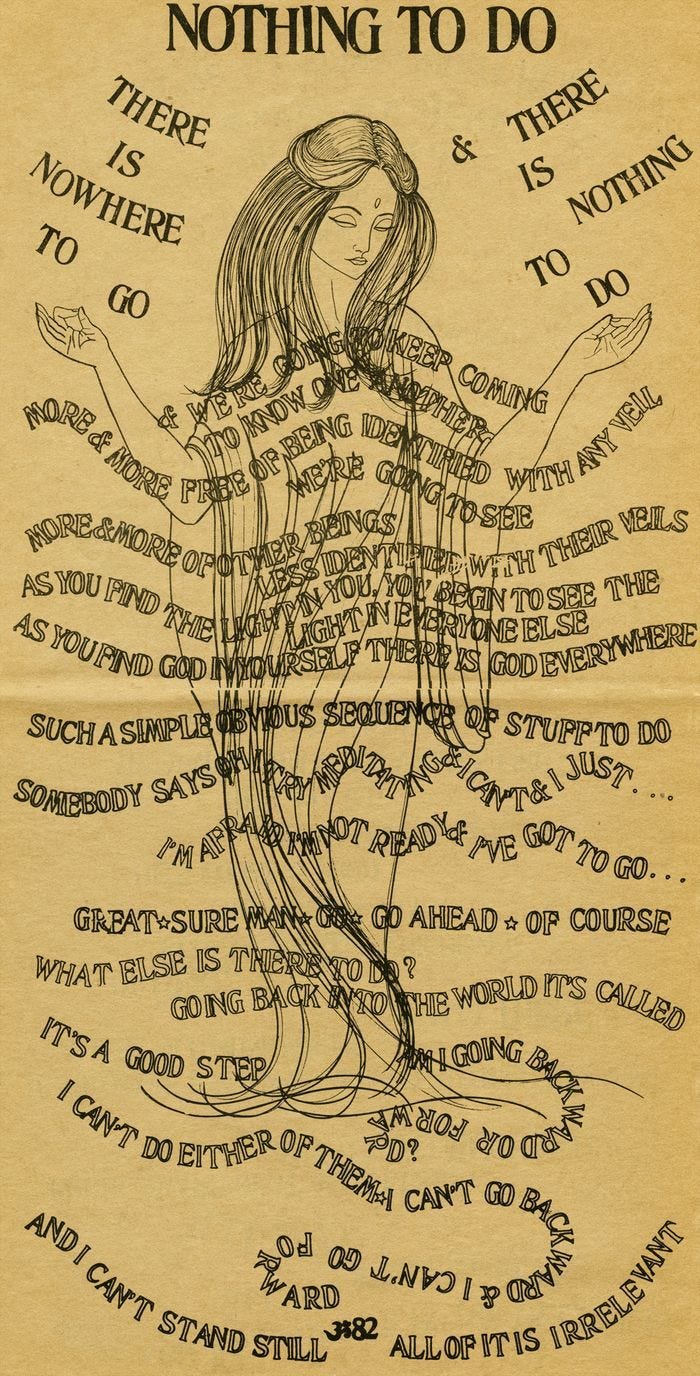 NOTHING TO DO
THERE
IS
NOWHERE
TO GO
& THERE
IS
NOTHING
TO
DO
& WE'RE GOING TO KEEP COMING
TO KNOW ONE ANOTHER
MORE & MORE FREE OF BEING IDENTIFIED WITH ANY VEIL
WE'RE GOING TO SEE
MORE & MORE OF OTHER BEINGS
LESS IDENTIFIED WITH THEIR VEILS
AS YOU FIND THE LIGHT IN YOU, YOU BEGIN TO SEE THE
LIGHT IN EVERYONE ELSE
AS YOU FIND GOD IN YOURSELF THERE IS GOD EVERYWHERE
SUCH A SIMPLE OBVIOUS SEQUENCE OF STUFF TO DO
SOMEBODY SAYS OH I TRY MEDITATING & I CAN'T & I JUST....
I'M AFRAID I'M NOT READY & I'VE GOT TO GO...
GREAT☆SURE MAN☆GO☆ GO AHEAD ☆ OF COURSE
WHAT ELSE IS THERE TO DO?
GOING BACK INTO THE WORLD IT'S CALLED
IT'S A GOOD STEP
AM I GOING BACKWARD OR FORWARD?
I CAN'T DO EITHER OF THEM☆I CAN'T GO BACKWARD & I CAN'T GO FORWARD
AND I CAN'T STAND STILL
82
ALL OF IT IS IRRELEVANT